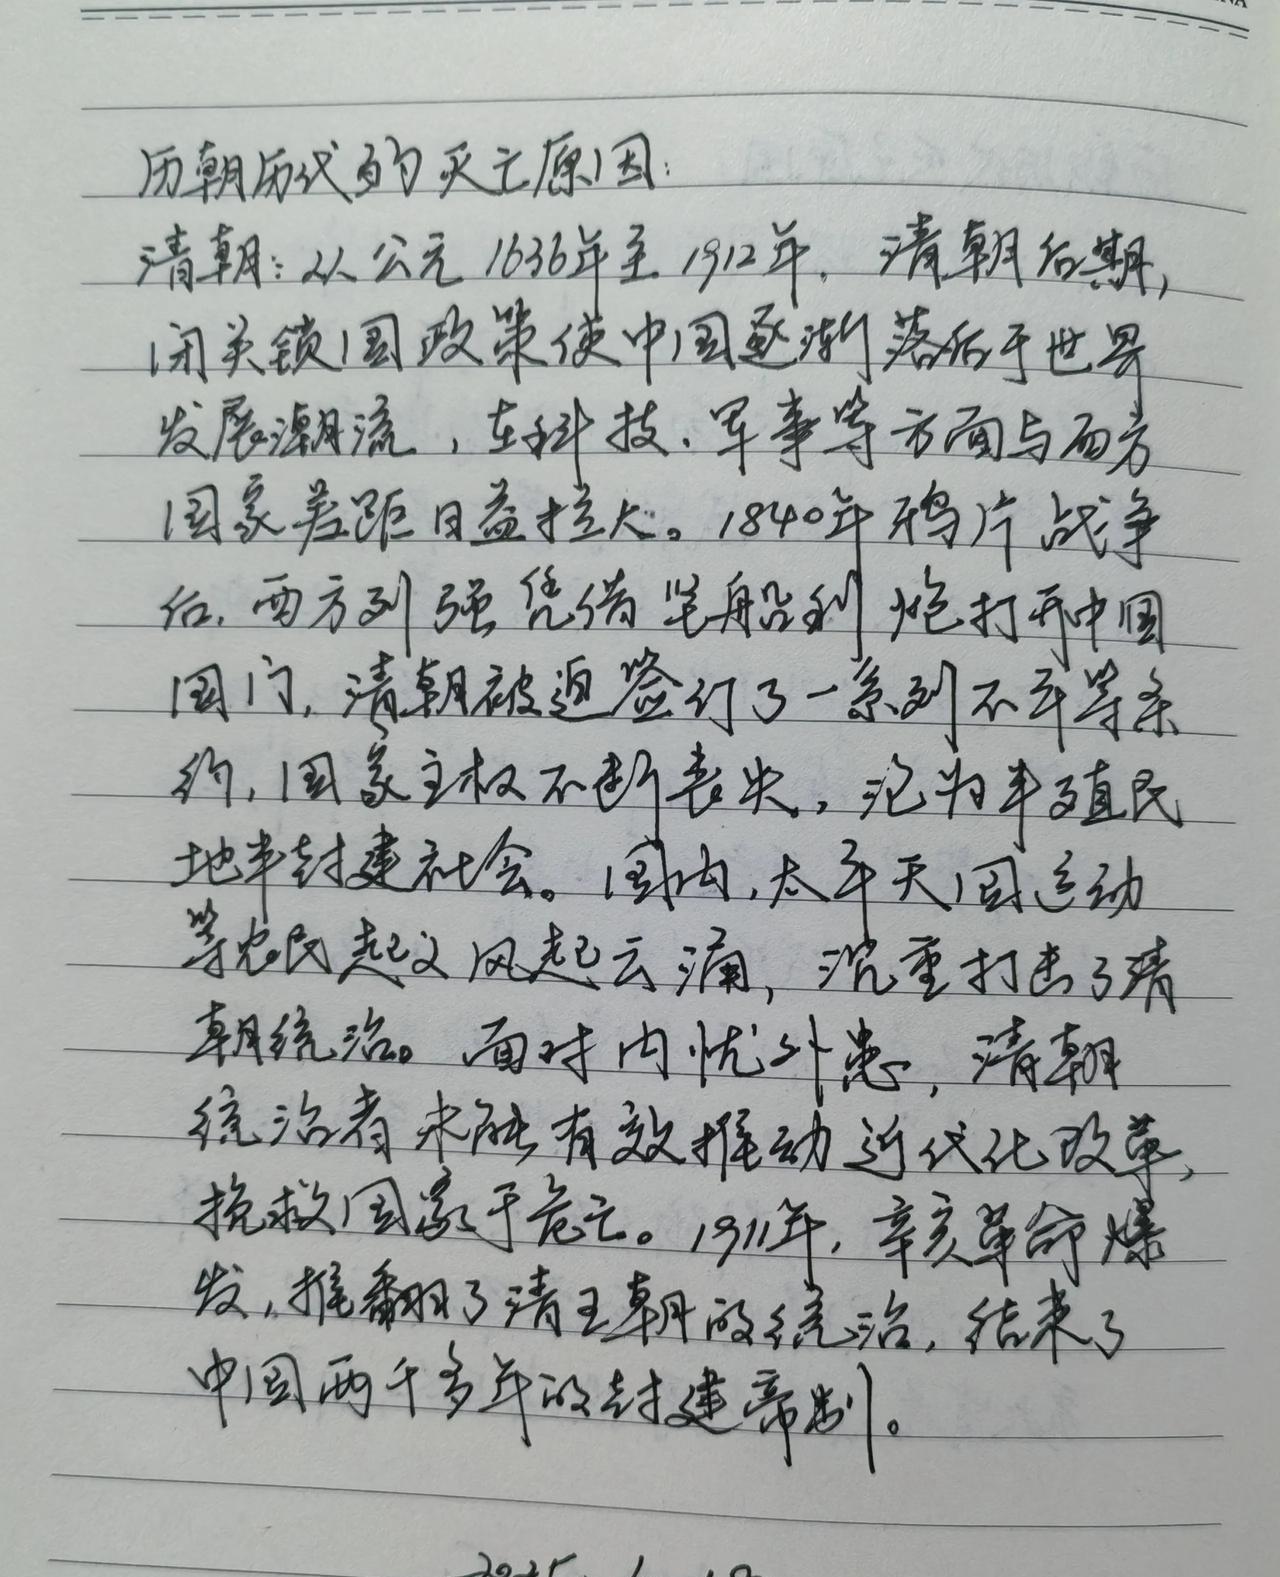 历朝历代的灭亡原因：
清朝：从公元1636年至1912年，清朝后期，
闭关锁国政策使中国逐渐落后于世界
发展潮流，在科技、军事等方面与西方
国家差距日益拉大。1840年鸦片战争
后，西方列强凭借坚船利炮打开中国
国门，清朝被迫签订了一系列不平等条
约，国家主权不断丧失，沦为半殖民
地半封建社会。国内，太平天国运动
等农民起义风起云涌，沉重打击了清
朝统治。面对内忧外患，清朝
统治者未能有效推动近代化改革，
挽救国家于危亡。1911年，辛亥革命爆
发，推翻了清王朝的统治，结束了
中国两千多年的封建帝制。